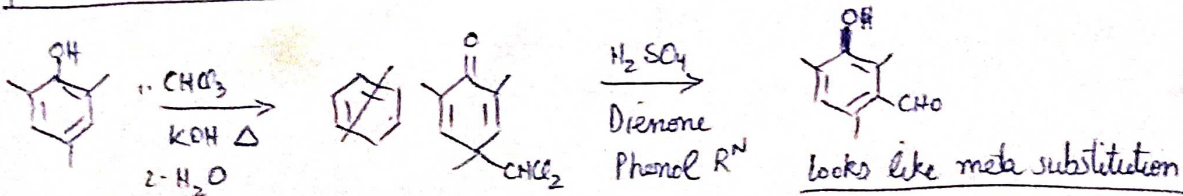 OH
1. CHCl3
KOH Δ
2- H2O
O
CHCl2
H2SO4
Dienone
Phenol RN
OH
CHO
looks like meta substitution